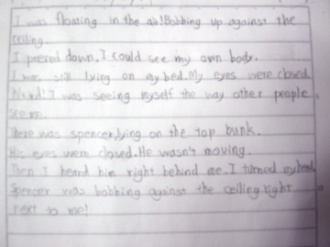 I was floating in the air!Bobbing up against the
ceiling.
I peered down.I could see my own body.
I was still lying on my bed.My eyes were closed.
Weird!I was seeing myself the way other people
see me.
There was spencer,lying on the top bunk.
His eyes were closed.He wasn't moving.
Then I heard him right behind me.I turned my head.
Spencer was bobbing against the ceiling right
next to me!